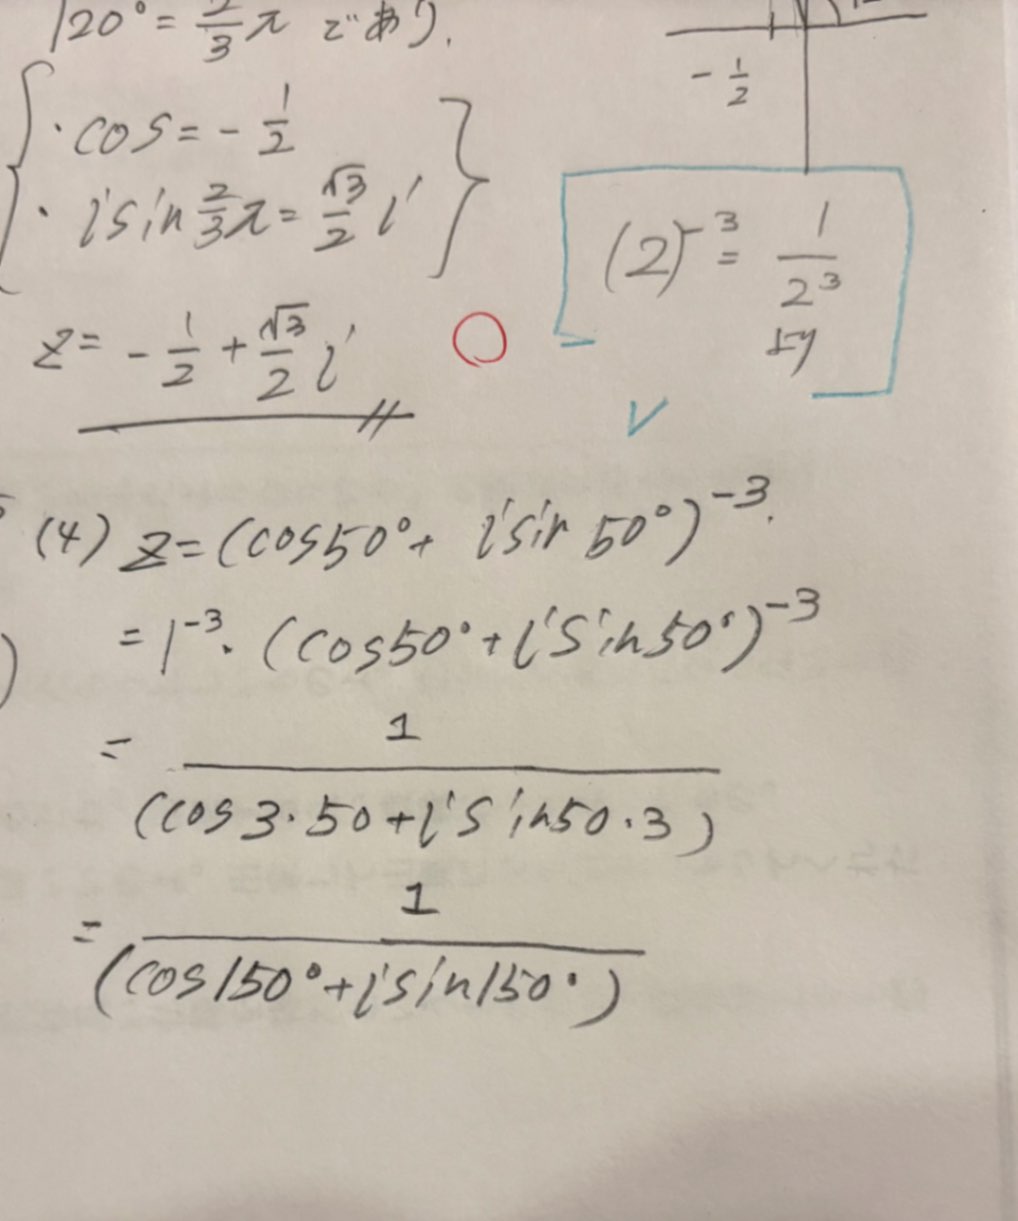 120° = 2/3 π であり.
・cos = - 1/2
・i sin 2/3 π = √3/2 i
z = - 1/2 + √3/2 i
- 1/2
(2)^-3 = 1/2^3
より
(4) z = (cos50° + i sin 50°)^-3.
= 1^-3・(cos50° + i sin50°)^-3
= 1/(cos3・50 + i sin50・3)
= 1/(cos150° + i sin150°)